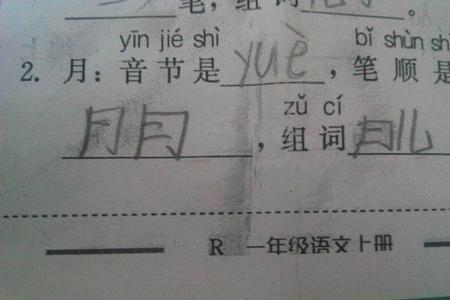 笔，组词
。
yīn jié shì bǐ shùn
2. 月：音节是 yuè ，笔顺是
zǔ cí
月月 ，组词 月儿
R 一年级语文上册